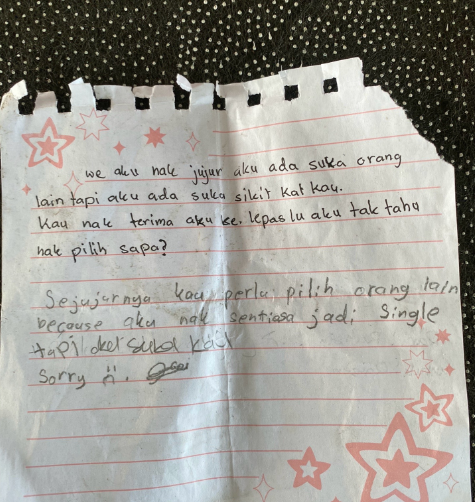 we aku nak jujur aku ada suka orang
lain tapi aku ada suka sikit kat kau.
Kau nak terima aku ke. lepas lu aku tak tahu
nak pilih sapa?
Sejujurnya kau perlu pilih orang lain
because aku nak sentiasa jadi single
tapi suka kau
Sorry :(.